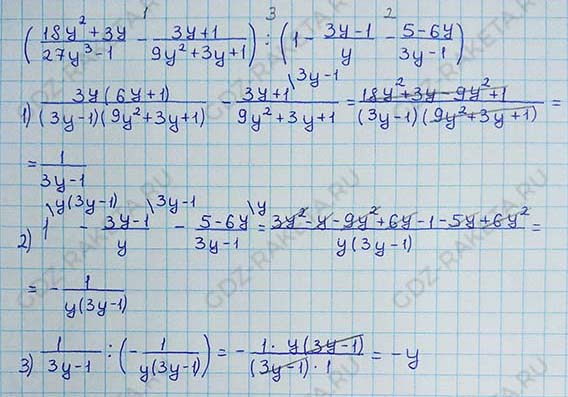 1 3 2
((18y²+3y)/(27y³-1) - (3y+1)/(9y²+3y+1)) : (1 - (3y-1)/y - (5-6y)/(3y-1))
1) 3y(6y+1)/((3y-1)(9y²+3y+1)) - (3y+1)/(9y²+3y+1) \3y-1 = (18y²+3y-9y²+1)/((3y-1)(9y²+3y+1)) =
= 1/(3y-1)
2) 1 \y(3y-1) - (3y-1)/y \3y-1 - (5-6y)/(3y-1) \y = (3y²-y-9y²+6y-1-5y+6y²)/(y(3y-1)) =
= - 1/(y(3y-1))
3) 1/(3y-1) : (- 1/(y(3y-1))) = - (1·y(3y-1))/((3y-1)·1) = -y
GDZ-RAKETA.RU